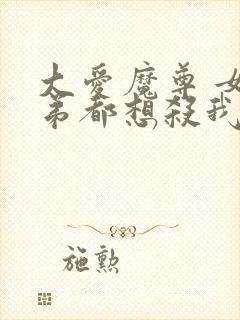 大愛魔尊 女
弟都想殺我
施勲